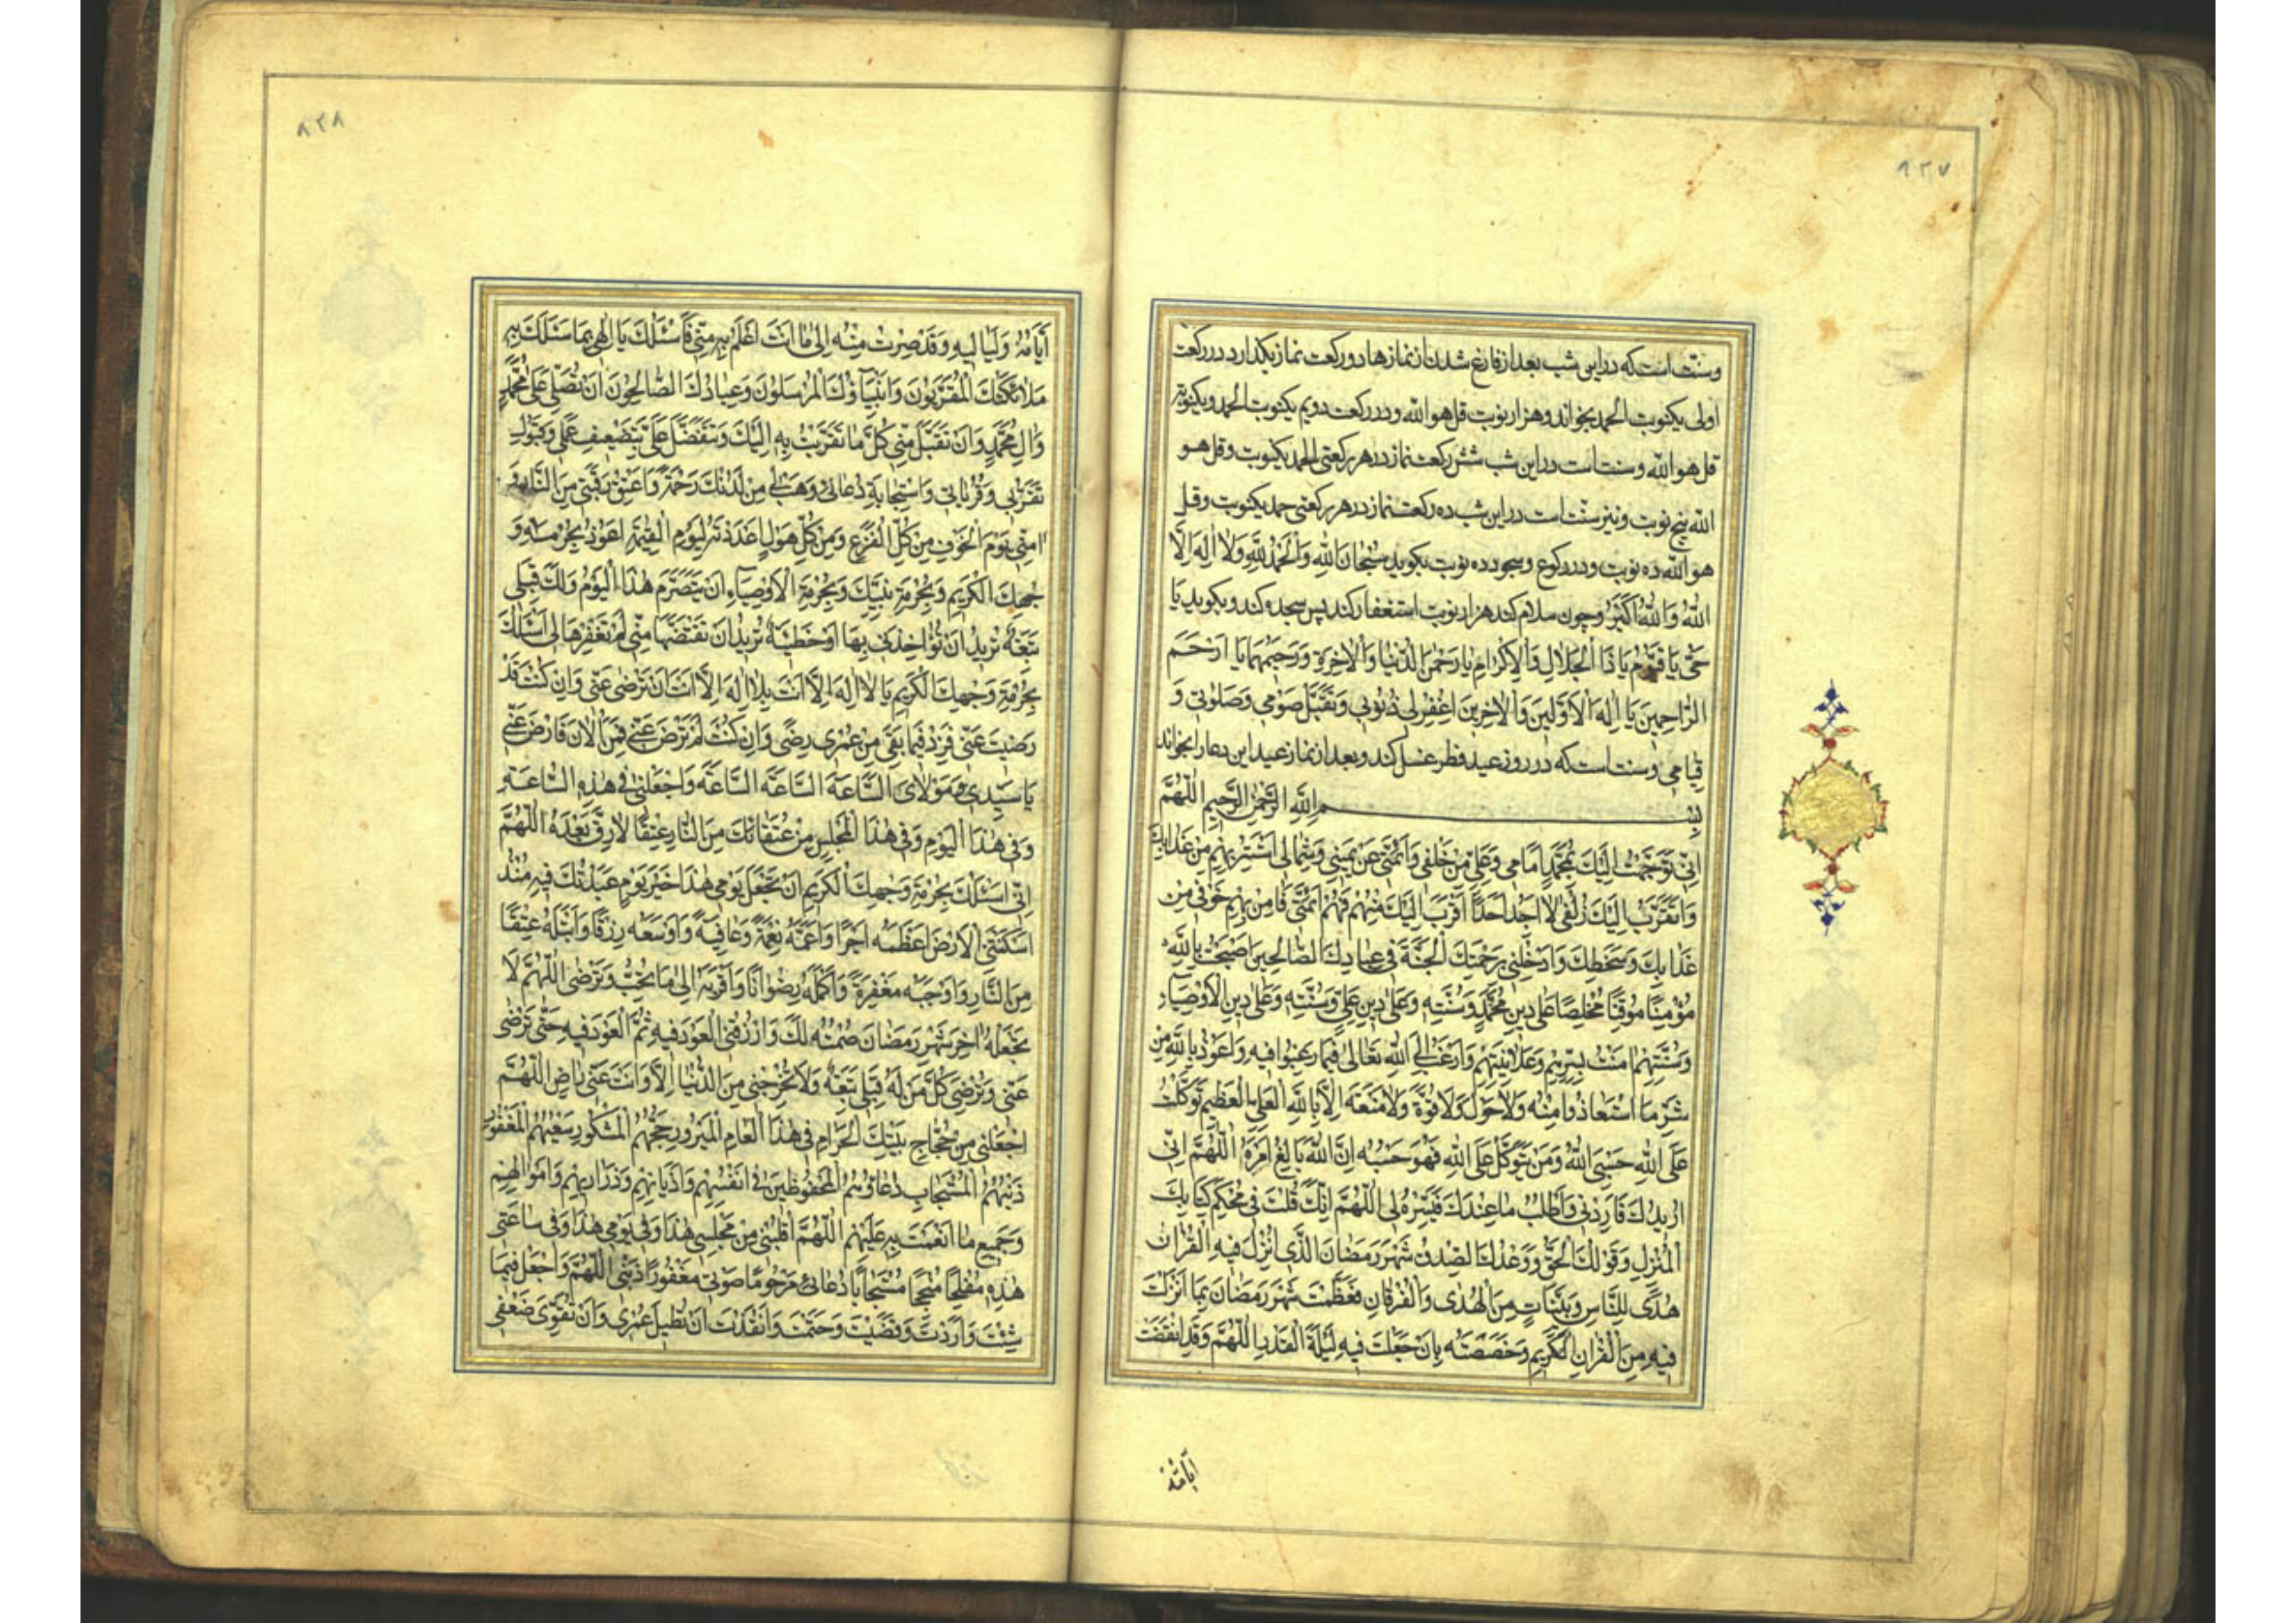 ٩٢٧
وسنت است که دراین شب بعد از فارغ شدن از نمازها دو رکعت نماز بگذارد در رکعت
اولی یکنوبت الحمد بخواند و هزار نوبت قل هو الله و در رکعت دویم یکنوبت الحمد و یکنوبة
قل هو الله و سنت است دراین شب شش رکعت نماز در هر رکعتی الحمد یکنوبت و قل هو
الله پنج نوبت و نیز سنّت است دراین شب ده رکعت نماز در هر رکعتی حمد یکنوبت و قل
هو الله ده نوبت و در رکوع و سجود ده نوبت بکوید سُبْحَانَ اللهِ وَالْحَمْدُ لِلّهِ وَلَا اِلهَ اِلَّا
اللهُ وَاللهُ اَکْبَرُ و چون سلام کند هزار نوبت استغفار کند پس سجده کند و بکوید یَا
حَیُّ یَا قَیُّومُ یَا ذَا الْجَلَالِ وَالْاِکْرَامِ یَا رَحْمنَ الدُّنْیَا وَالْاخِرَةِ وَرَحِیمَهُمَا یَا اَرْحَمَ
الرَّاحِمِینَ یَا اِلهَ الْاَوَّلِینَ وَالْاخِرِینَ اِغْفِرْ لِی ذُنُوبِی وَتَقَبَّلْ صَوْمِی وَصَلوتِی وَ
قِیَامِی و سنت است که در روز عید فطر غسل کند و بعد از نماز عید این دعا را بخواند
بِسْمِ اللهِ الرَّحْمنِ الرَّحِیمِ اَللّهُمَّ
اِنِّی تَوَجَّهْتُ اِلَیْکَ بِمُحَمَّدٍ اَمَامِی وَعَلِیٍّ مِنْ خَلْفِی وَاَئِمَّتِی عَنْ یَمِینِی وَشِمَالِی اَسْتَتِرُ بِهِمْ مِنْ عَذَابِکَ
وَاَتَقَرَّبُ اِلَیْکَ زُلْفی لَا اَجِدُ اَحَدًا اَقْرَبَ اِلَیْکَ مِنْهُمْ فَهُمْ اَئِمَّتِی فَامِنْ بِهِمْ خَوْفِی مِنْ
عَذَابِکَ وَسَخَطِکَ وَاَدْخِلْنِی بِرَحْمَتِکَ الْجَنَّةَ فِی عِبَادِکَ الصَّالِحِینَ اَصْبَحْتُ بِاللهِ
مُؤْمِنًا مُوقِنًا مُخْلِصًا عَلی دِینِ مُحَمَّدٍ وَسُنَّتِهِ وَعَلی دِینِ عَلِیٍّ وَسُنَّتِهِ وَعَلی دِینِ الْاَوْصِیَاءِ
وَسُنَّتِهِمْ امَنْتُ بِسِرِّهِمْ وَعَلَانِیَتِهِمْ وَاَرْغَبُ اِلَی اللهِ تَعَالی فِیمَا رَغِبُوا فِیهِ وَاَعُوذُ بِاللهِ مِنْ
شَرِّ مَا اسْتَعَاذُوا مِنْهُ وَلَا حَوْلَ وَلَا قُوَّةَ وَلَا مَنَعَةَ اِلَّا بِاللهِ الْعَلِیِّ الْعَظِیمِ تَوَکَّلْتُ
عَلَی اللهِ حَسْبِیَ اللهُ وَمَنْ یَتَوَکَّلْ عَلَی اللهِ فَهُوَ حَسْبُهُ اِنَّ اللهَ بَالِغُ اَمْرِهِ اَللّهُمَّ اِنِّی
اُرِیدُکَ فَارِدْنِی وَاَطْلُبُ مَا عِنْدَکَ فَیَسِّرْهُ لِی اَللّهُمَّ اِنَّکَ قُلْتَ فِی مُحْکَمِ کِتَابِکَ
الْمُنْزَلِ وَقَوْلُکَ الْحَقُّ وَوَعْدُکَ الصِّدْقُ شَهْرُ رَمَضَانَ الَّذِی اُنْزِلَ فِیهِ الْقُرْانُ
هُدًی لِلنَّاسِ وَبَیِّنَاتٍ مِنَ الْهُدی وَالْفُرْقَانِ فَعَظَّمْتَ شَهْرَ رَمَضَانَ بِمَا اَنْزَلْتَ
فِیهِ مِنَ الْقُرْانِ الْکَرِیمِ وَخَصَصْتَهُ بِاَنْ جَعَلْتَ فِیهِ لَیْلَةَ الْقَدْرِ اَللّهُمَّ وَقَدِ انْقَضَتْ
اَیَّامُهُ
٨٢٨
اَیَّامُهُ وَلَیَالِیهِ وَقَدْ صِرْتُ مِنْهُ اِلی مَا اَنْتَ اَعْلَمُ بِهِ مِنِّی فَاَسْئَلُکَ یَا اِلهِی بِمَا سَئَلَکَ بِهِ
مَلَائِکَتُکَ الْمُقَرَّبُونَ وَاَنْبِیَاؤُکَ الْمُرْسَلُونَ وَعِبَادُکَ الصَّالِحُونَ اَنْ تُصَلِّیَ عَلی مُحَمَّدٍ
وَالِ مُحَمَّدٍ وَاَنْ تَقَبَّلَ مِنِّی کُلَّ مَا تَقَرَّبْتُ بِهِ اِلَیْکَ وَتَتَفَضَّلَ عَلَیَّ بِتَضْعِیفِ عَمَلِی وَقَبُولِ
تَقَرُّبِی وَقُرُبَاتِی وَاسْتِجَابَةِ دُعَائِی وَهَبْ لِی مِنْ لَدُنْکَ رَحْمَةً وَاَعْتِقْ رَقَبَتِی مِنَ النَّارِ وَ
امِنِّی یَوْمَ الْخَوْفِ مِنْ کُلِّ الْفَزَعِ وَمِنْ کُلِّ هَوْلٍ اَعْدَدْتَهُ لِیَوْمِ الْقِیمَةِ اَعُوذُ بِحُرْمَةِ وَ
جْهِکَ الْکَرِیمِ وَبِحُرْمَةِ نَبِیِّکَ وَبِحُرْمَةِ الْاَوْصِیَاءِ اَنْ یَتَصَرَّمَ هذَا الْیَوْمُ وَلَکَ قِبَلِی
تَبِعَةٌ تُرِیدُ اَنْ تُؤَاخِذَنِی بِهَا اَوْ خَطِیئَةٌ تُرِیدُ اَنْ تَقْتَصَّهَا مِنِّی لَمْ تَغْفِرْهَا لِی اَسْئَلُکَ
بِحُرْمَةِ وَجْهِکَ الْکَرِیمِ یَا لَا اِلهَ اِلَّا اَنْتَ بِلَا اِلهَ اِلَّا اَنْتَ اَنْ تَرْضی عَنِّی وَاِنْ کُنْتَ قَدْ
رَضِیتَ عَنِّی فَزِدْ فِیمَا بَقِیَ مِنْ عُمْرِی رِضًی وَاِنْ کُنْتَ لَمْ تَرْضَ عَنِّی فَمِنَ الْانَ فَارْضَ عَنِّی
یَا سَیِّدِی وَمَوْلَایَ السَّاعَةَ السَّاعَةَ السَّاعَةَ وَاجْعَلْنِی فِی هذِهِ السَّاعَةِ
وَفِی هذَا الْیَوْمِ وَفِی هذَا الْمَجْلِسِ مِنْ عُتَقَائِکَ مِنَ النَّارِ عِتْقًا لَا رِقَّ بَعْدَهُ اَللّهُمَّ
اِنِّی اَسْئَلُکَ بِحُرْمَةِ وَجْهِکَ الْکَرِیمِ اَنْ تَجْعَلَ یَوْمِی هذَا خَیْرَ یَوْمٍ عَبَدْتُکَ فِیهِ مُنْذُ
اَسْکَنْتَنِی الْاَرْضَ اَعْظَمَهُ اَجْرًا وَاَعَمَّهُ نِعْمَةً وَعَافِیَةً وَاَوْسَعَهُ رِزْقًا وَاَبْتَلَهُ عِتْقًا
مِنَ النَّارِ وَاَوْجَبَهُ مَغْفِرَةً وَاَکْمَلَهُ رِضْوَانًا وَاَقْرَبَهُ اِلی مَا تُحِبُّ وَتَرْضی اَللّهُمَّ لَا
تَجْعَلْهُ اخِرَ شَهْرِ رَمَضَانَ صُمْتُهُ لَکَ وَارْزُقْنِی الْعَوْدَ فِیهِ ثُمَّ الْعَوْدَ فِیهِ حَتّی تَرْضی
عَنِّی وَتُرْضِیَ کُلَّ مَنْ لَهُ قِبَلِی تَبِعَةٌ وَلَا تُخْرِجْنِی مِنَ الدُّنْیَا اِلَّا وَاَنْتَ عَنِّی رَاضٍ اَللّهُمَّ
اجْعَلْنِی مِنْ حُجَّاجِ بَیْتِکَ الْحَرَامِ فِی هذَا الْعَامِ الْمَبْرُورِ حَجُّهُمْ الْمَشْکُورِ سَعْیُهُمْ الْمَغْفُورِ
ذَنْبُهُمْ الْمُسْتَجَابِ دُعَاؤُهُمْ الْمَحْفُوظِینَ فِی اَنْفُسِهِمْ وَاَدْیَانِهِمْ وَذَرَارِیهِمْ وَاَمْوَالِهِمْ
وَجَمِیعِ مَا اَنْعَمْتَ بِهِ عَلَیْهِمْ اَللّهُمَّ اقْلِبْنِی مِنْ مَجْلِسِی هذَا وَفِی یَوْمِی هذَا وَفِی سَاعَتِی
هذِهِ مُفْلِحًا مُنْجِحًا مُسْتَجَابًا دُعَائِی مَرْحُومًا صَوْتِی مَغْفُورًا ذَنْبِی اَللّهُمَّ وَاجْعَلْ فِیمَا
شِئْتَ وَاَرَدْتَ وَقَضَیْتَ وَحَتَمْتَ وَاَنْفَذْتَ اَنْ تُطِیلَ عُمْرِی وَاَنْ تُقَوِّیَ ضَعْفِی